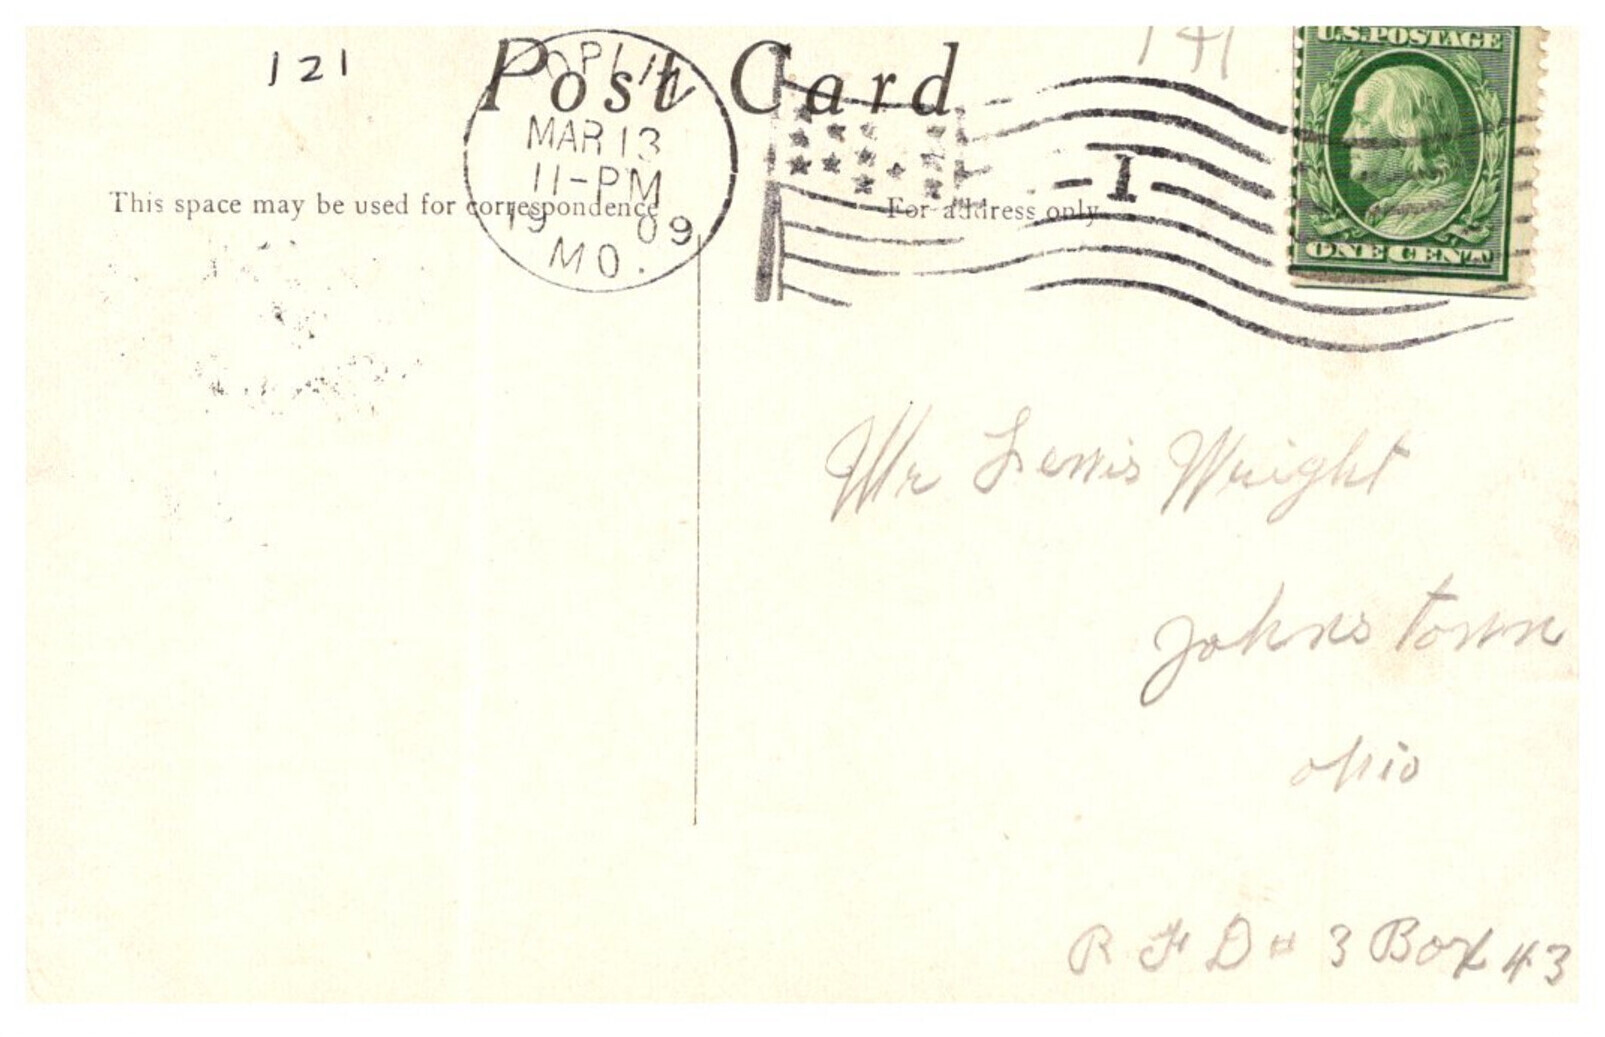 121
141
Post Card
U.S. POSTAGE
JOPLIN
MAR 13
11-PM
1909
MO.
1
This space may be used for correspondence
For address only
ONE CENT
Mr Lewis Wright
Johnstown
Ohio
R F D # 3 Box 43